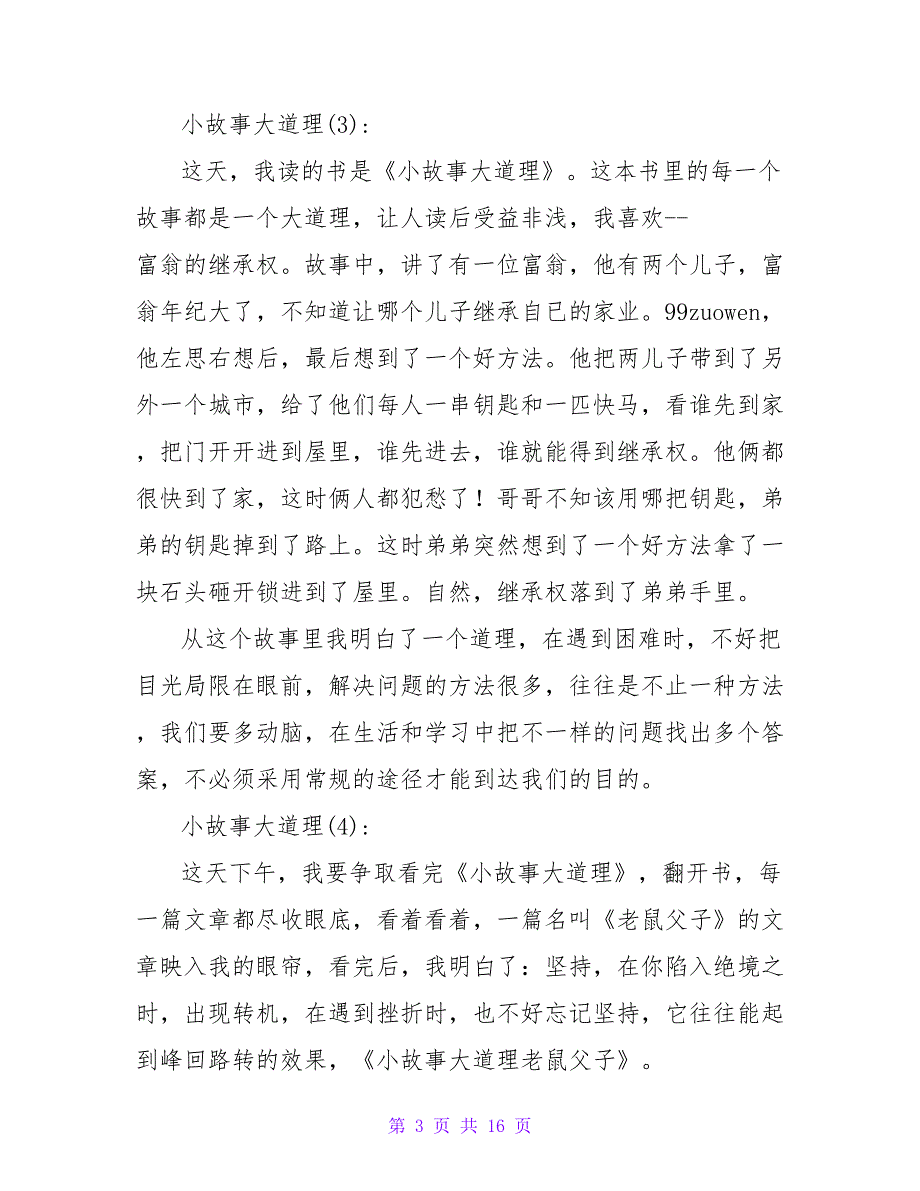 小故事大道理(3):
这天，我读的书是《小故事大道理》。这本书里的每一个
故事都是一个大道理，让人读后受益非浅，我喜欢--
富翁的继承权。故事中，讲了有一位富翁，他有两个儿子，富
翁年纪大了，不知道让哪个儿子继承自已的家业。99zuowen，
他左思右想后，最后想到了一个好方法。他把两儿子带到了另
外一个城市，给了他们每人一串钥匙和一匹快马，看谁先到家
，把门开开进到屋里，谁先进去，谁就能得到继承权。他俩都
很快到了家，这时俩人都犯愁了！哥哥不知该用哪把钥匙，弟
弟的钥匙掉到了路上。这时弟弟突然想到了一个好方法拿了一
块石头砸开锁进到了屋里。自然，继承权落到了弟弟手里。
从这个故事里我明白了一个道理，在遇到困难时，不好把
目光局限在眼前，解决问题的方法很多，往往是不止一种方法
，我们要多动脑，在生活和学习中把不一样的问题找出多个答
案，不必须采用常规的途径才能到达我们的目的。
小故事大道理(4):
这天下午，我要争取看完《小故事大道理》，翻开书，每
一篇文章都尽收眼底，看着看着，一篇名叫《老鼠父子》的文
章映入我的眼帘，看完后，我明白了：坚持，在你陷入绝境之
时，出现转机，在遇到挫折时，也不好忘记坚持，它往往能起
到峰回路转的效果，《小故事大道理老鼠父子》。
第 3 页 共 16 页